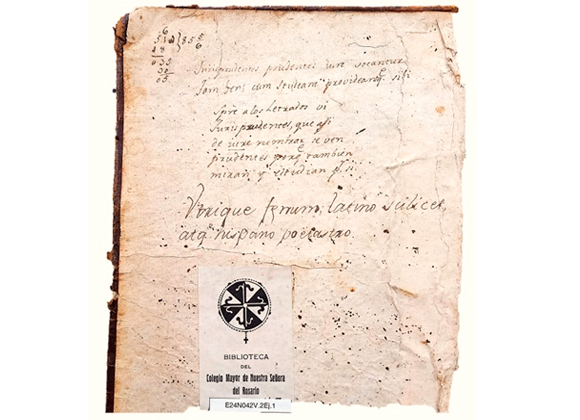 6
Jurisprudentes prudentes iure vocantur
cum studeant provideantq. sibi
a los Letrados vi
Jurisprudentes, que asi
de iure nombrar se ven
prudentes porq. tambien
miran y estudian pa. si
Vtrique fenum, latino scilicet,
atq. hispano poetastro.
BIBLIOTECA
DEL
Colegio Mayor de Nuestra Señora
del Rosario
E24N042V.2Ej.1